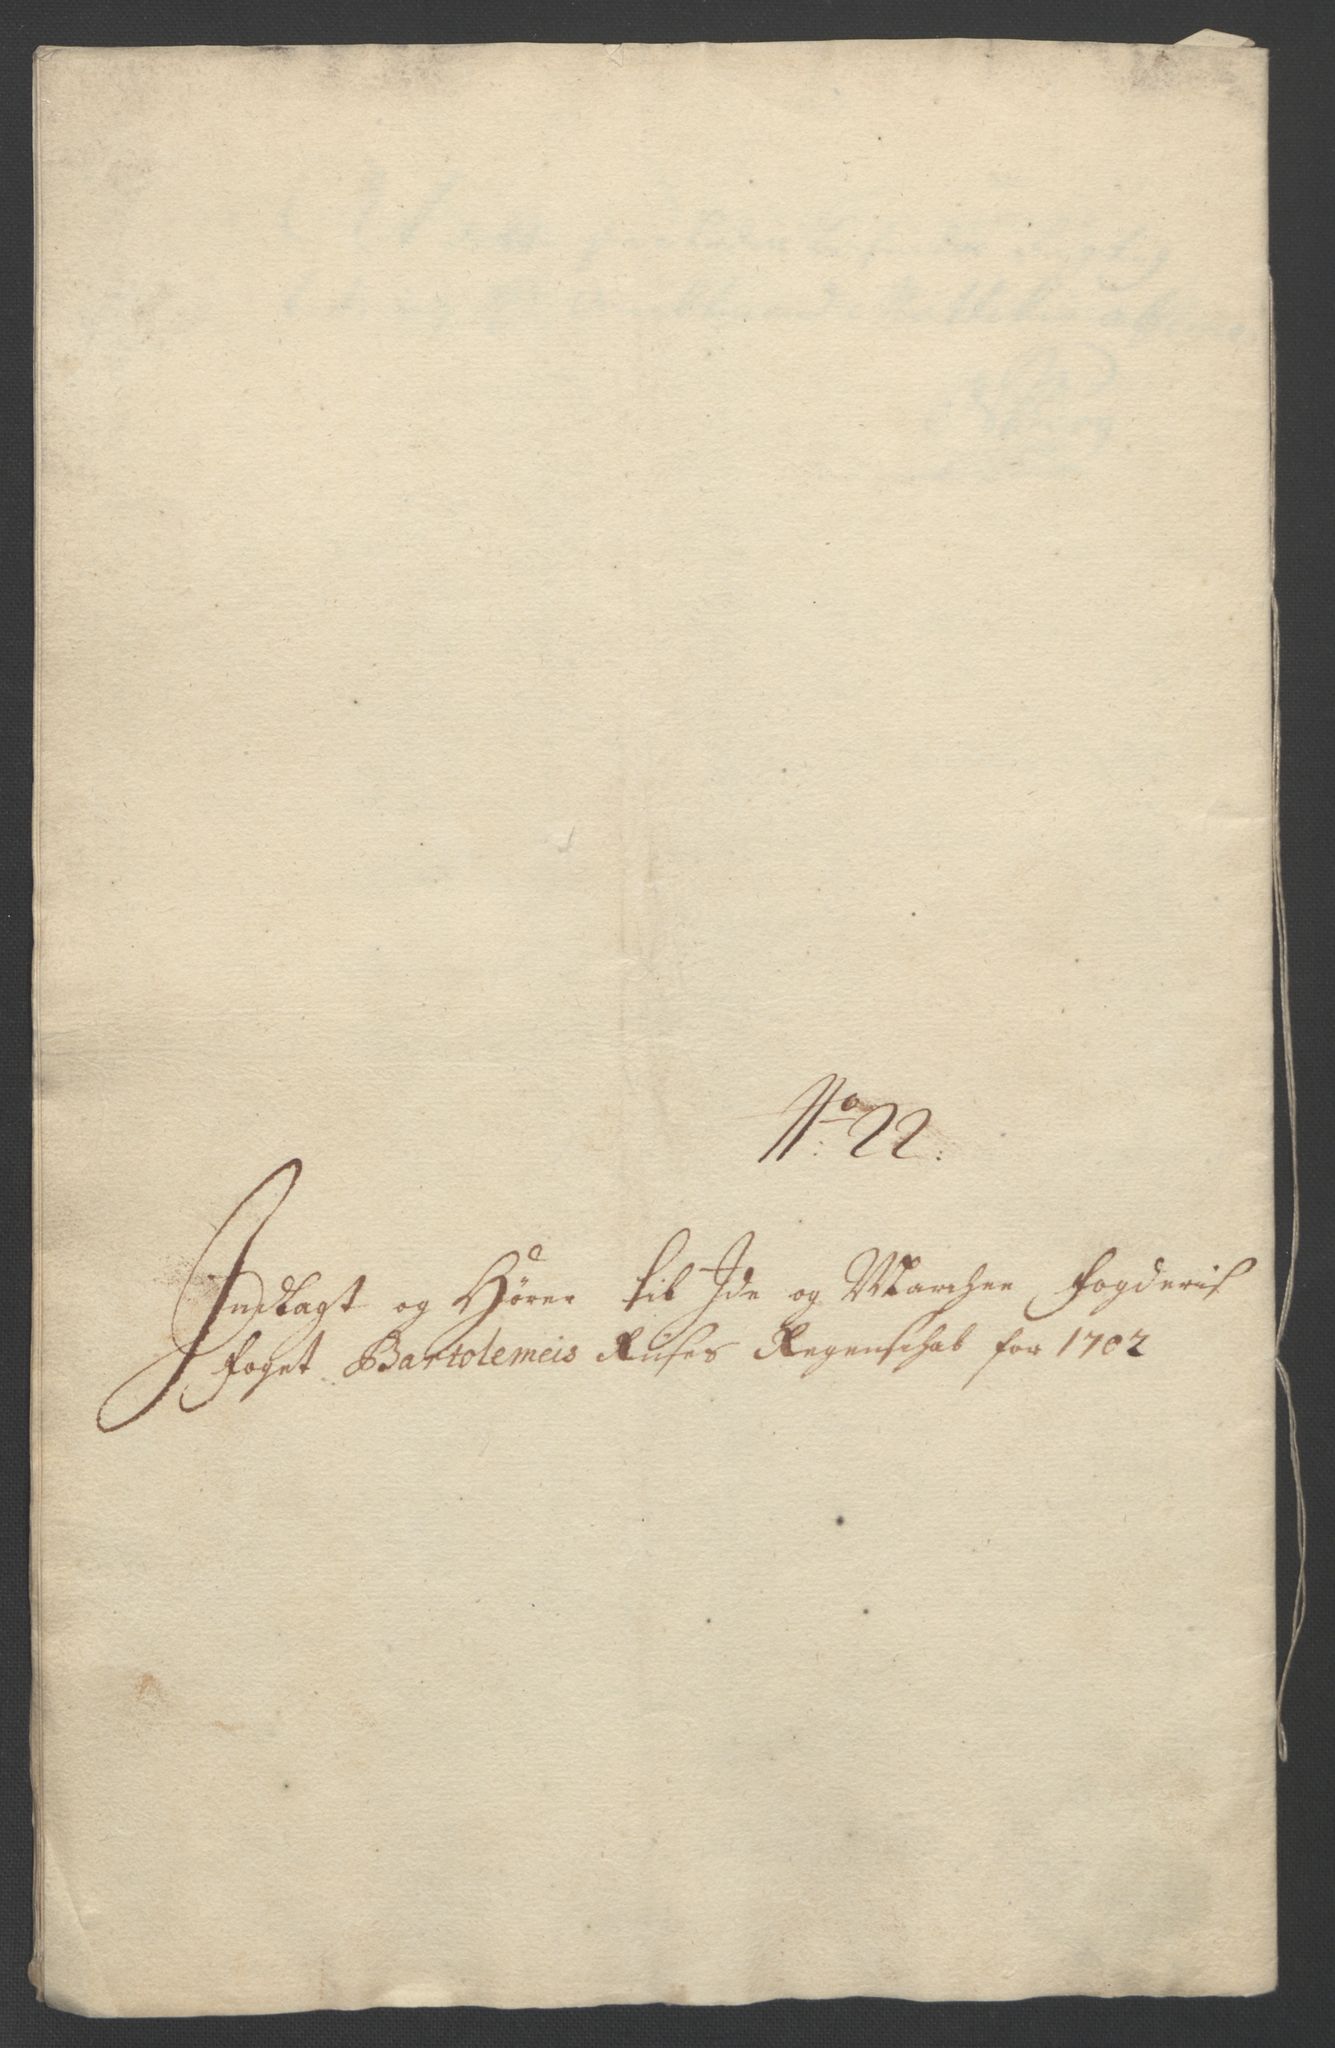 No. 22.
Indlagt og Hører til Ide og Marchen Fogderis
foget Bartolemeis Ruses Regenschab for 1702